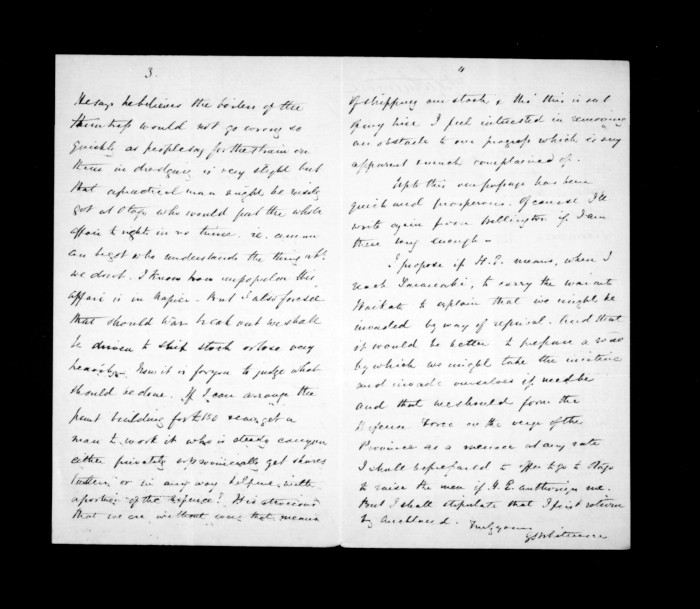 3.
He says he believes the boilers of the
would not go wrong so
quickly as people say for the strain on
them in dredging is very slight but
that a practical man might be easily
got at Otago who would put the whole
affair to rights in no time. i.e. a man
can be got who understands the thing wh.
we don't. I know how unpopular this
affair is in Napier. But I also foresee
that should war break out we shall
be driven to ship stock or lose very
heavily. Now it is for you to judge what
should be done. If I can arrange the
punt building for £150 & can get a
man to work it who is steady can you
either privately or provincially get shares
taken or in any way help me with
a portion of the expence? It is
that we are without any that means
4
of shipping our stock & tho' this is out
of my line I feel interested in removing
an obstacle to our progress which is very
apparent & much complained of.
Up to this our passage has been
quick and prosperous. Of course I'll
write again from Wellington if I am
there long enough –
I propose if H.E. means, when I
reach Taranaki, to carry the war into
Waikato to explain that we might be
invaded by way of reprisal. And that
it would be better to prepare a road
by which we might take the initiative
and invade ourselves if need be
and that we should form the
Defence Force on the verge of the
Province as a menace at any rate
I shall be prepared to offer to go to Otago
to raise the men if H.E. authorises me.
But I shall stipulate that I first return
by Auckland. Truly yours
G S Whitmore